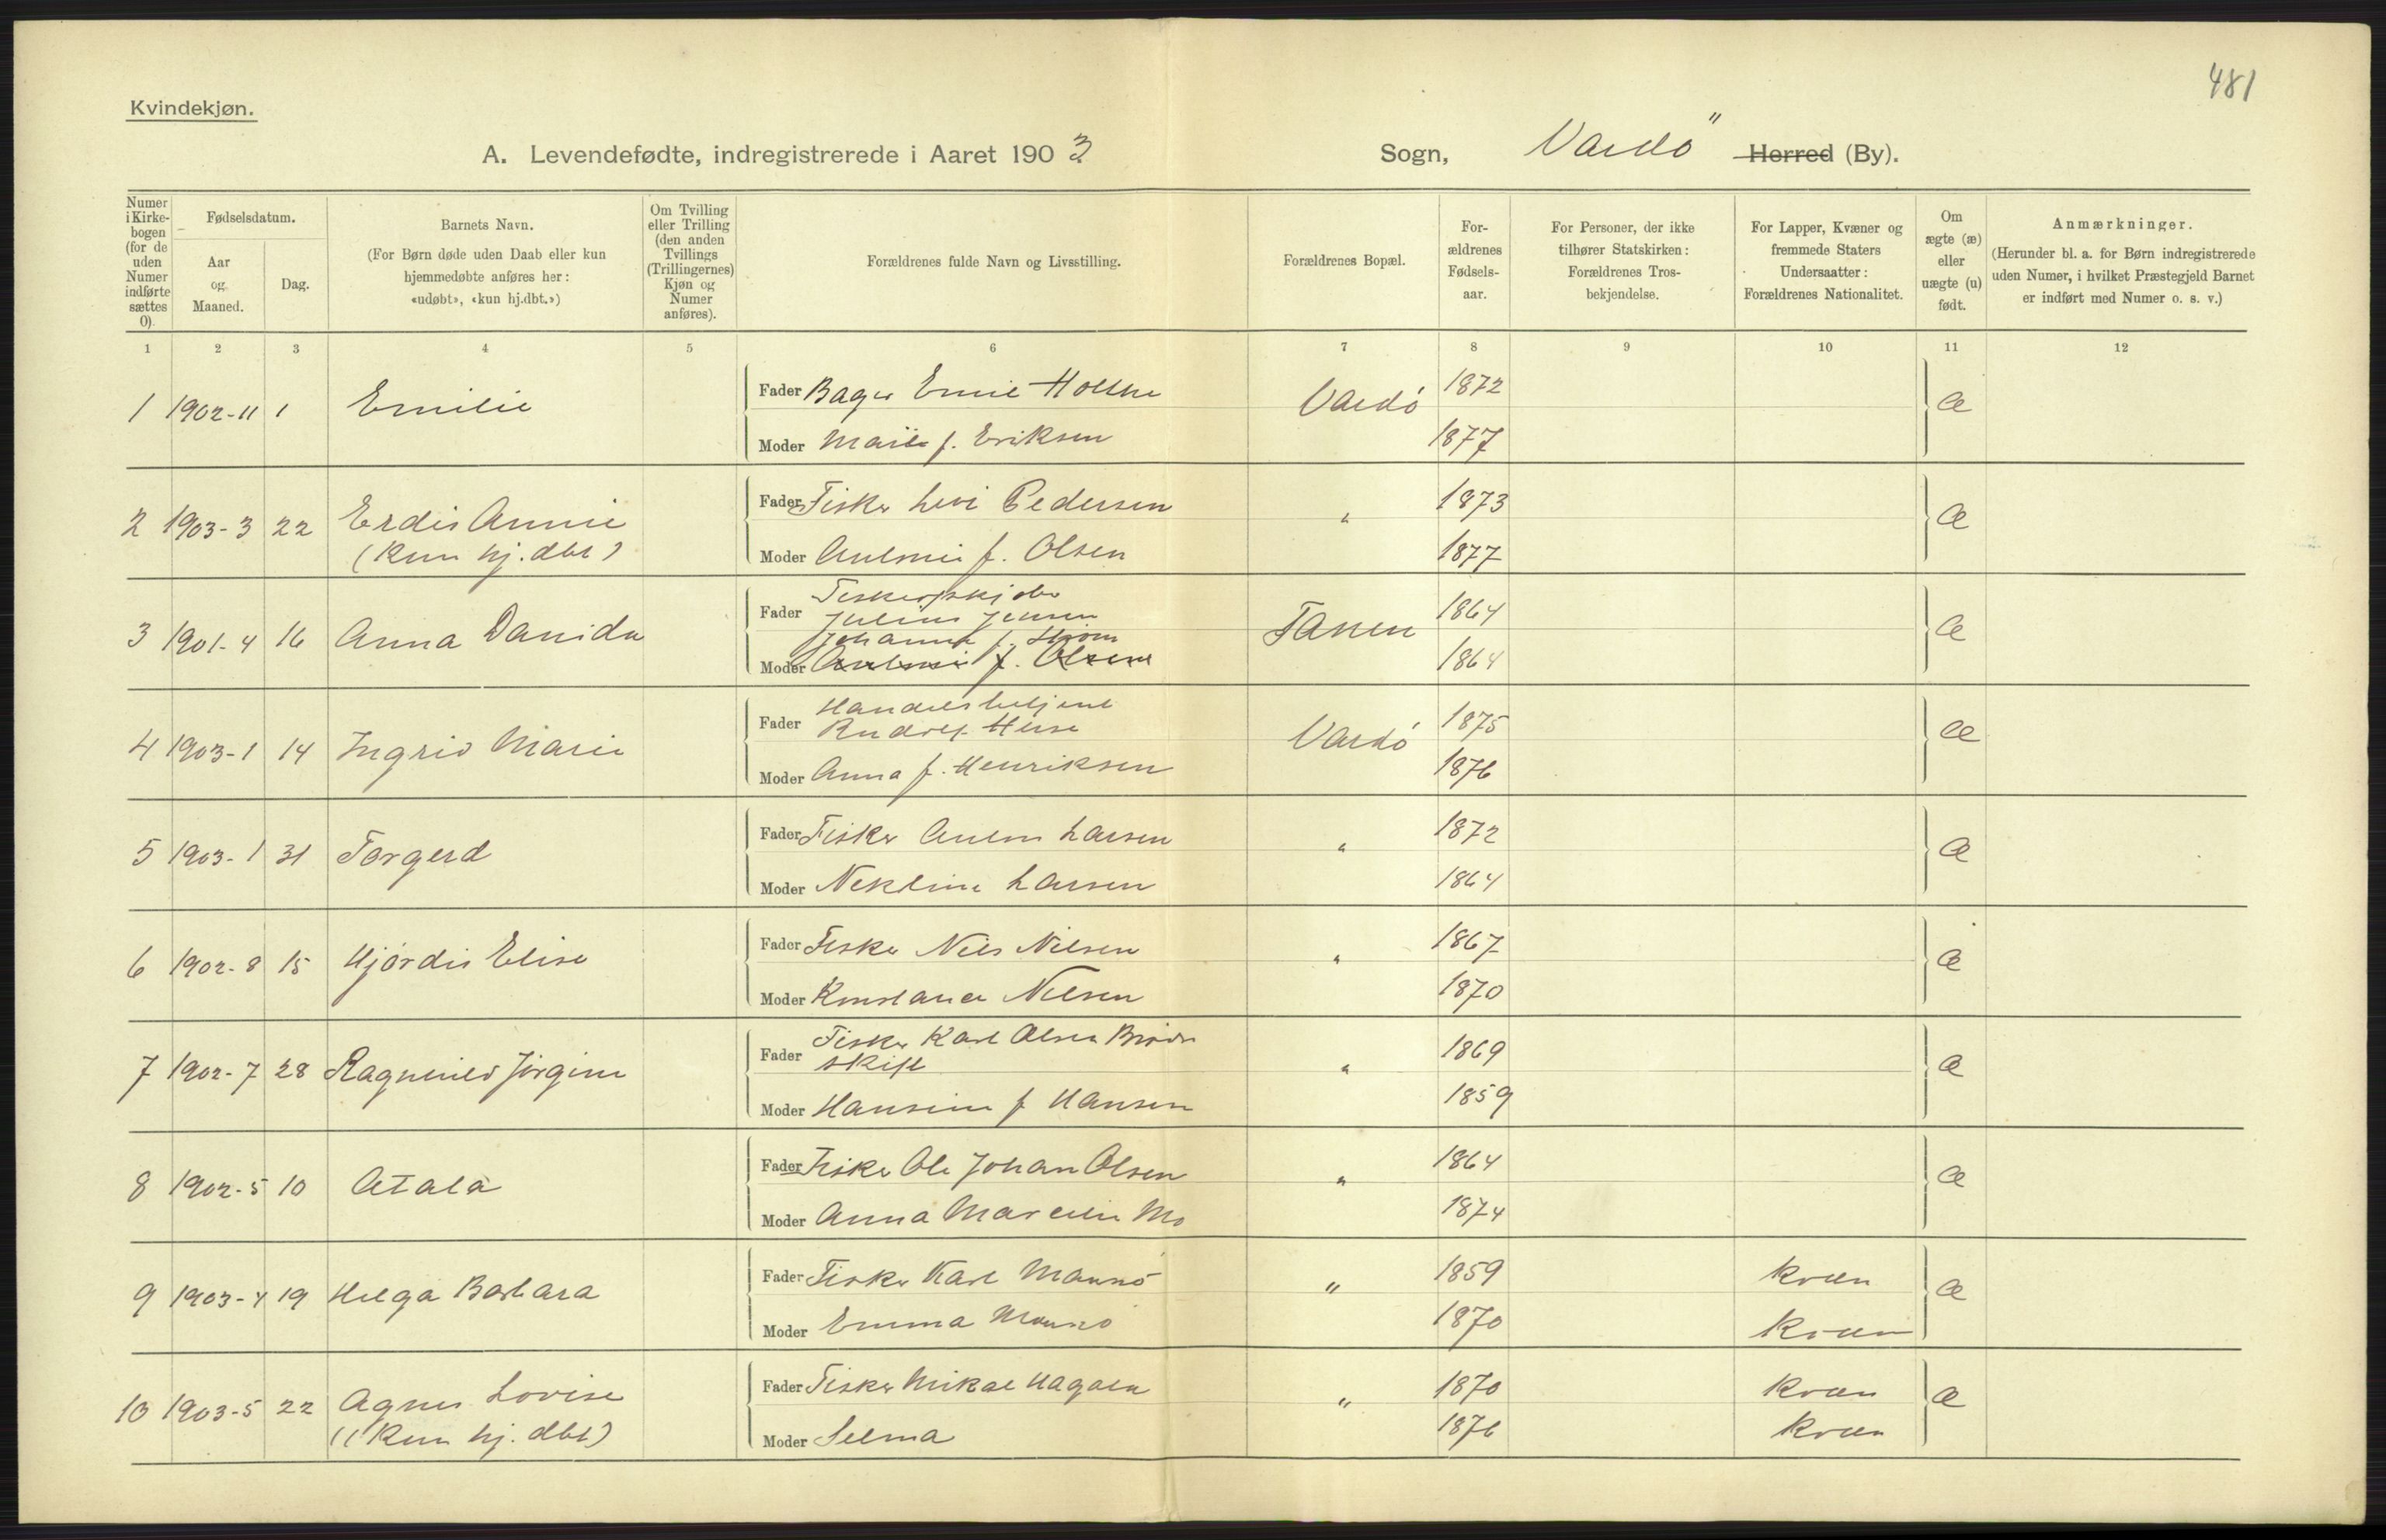 481
Kvindekjøn.
A. Levendefødte, indregistrerede i Aaret 1903 Sogn, Vardö Herred (By).
Numer i Kirkebogen (for de uden Numer indførte sættes 0).
Fødselsdatum.
Aar og Maaned.
Dag.
Barnets Navn.
(For Børn døde uden Daab eller kun hjemmedøbte anføres her: «udøbt», «kun hj.dbt.»)
Om Tvilling eller Trilling (den anden Tvillings (Trillingernes) Kjøn og Numer anføres).
Forældrenes fulde Navn og Livsstilling.
Forældrenes Bopæl.
Forældrenes Fødselsaar.
For Personer, der ikke tilhører Statskirken: Forældrenes Trosbekjendelse.
For Lapper, Kvæner og fremmede Staters Undersaatter: Forældrenes Nationalitet.
Om ægte (æ) eller uægte (u) født.
Anmærkninger.
(Herunder bl. a. for Børn indregistrerede uden Numer, i hvilket Præstegjeld Barnet er indført med Numer o. s. v.)
1 2 3 4 5 6 7 8 9 10 11 12
1 1902-11 1 Emilie Fader Bager Emil Vardö 1872 æ
Moder f. Eriksen 1877
2 1903-3 22 Erdis Annie Fader Fisker Levi Pedersen " 1873 æ
(Kun hj. dbt) Moder f. Olsen 1877
3 1901-4 16 Anna Danida Fader Julius Jensen Tanen 1864 æ
Johanna f. Strøm
Moder f. Olsen 1864
4 1903-1 14 Ingrid Marie Fader Handelsbetjent Rudolf Vardö 1875 æ
Moder Anna f. Henriksen 1876
5 1903-1 31 Torgerd Fader Fisker Anton Larsen " 1872 æ
Moder Larsen 1864
6 1902-8 15 Hjördis Elise Fader Fisker Nils Nilsen " 1867 æ
Moder Konstance Nilsen 1870
7 1902-7 28 Ragnhild Jörgine Fader Fisker Karl Olsen " 1869 æ
Moder Hansine f Hansen 1859
8 1902-5 10 Atala Fader Fisker Ole Johan Olsen " 1864 æ
Moder Anna Mo 1874
9 1903-4 19 Helga Barbara Fader Fisker Karl " 1859 kvæn æ
Moder Emma 1870 kvæn
10 1903-5 22 Agnes Lovise Fader Fisker Mikal " 1870 kvæn æ
(Kun hj. dbt) Moder Selma 1876 kvæn